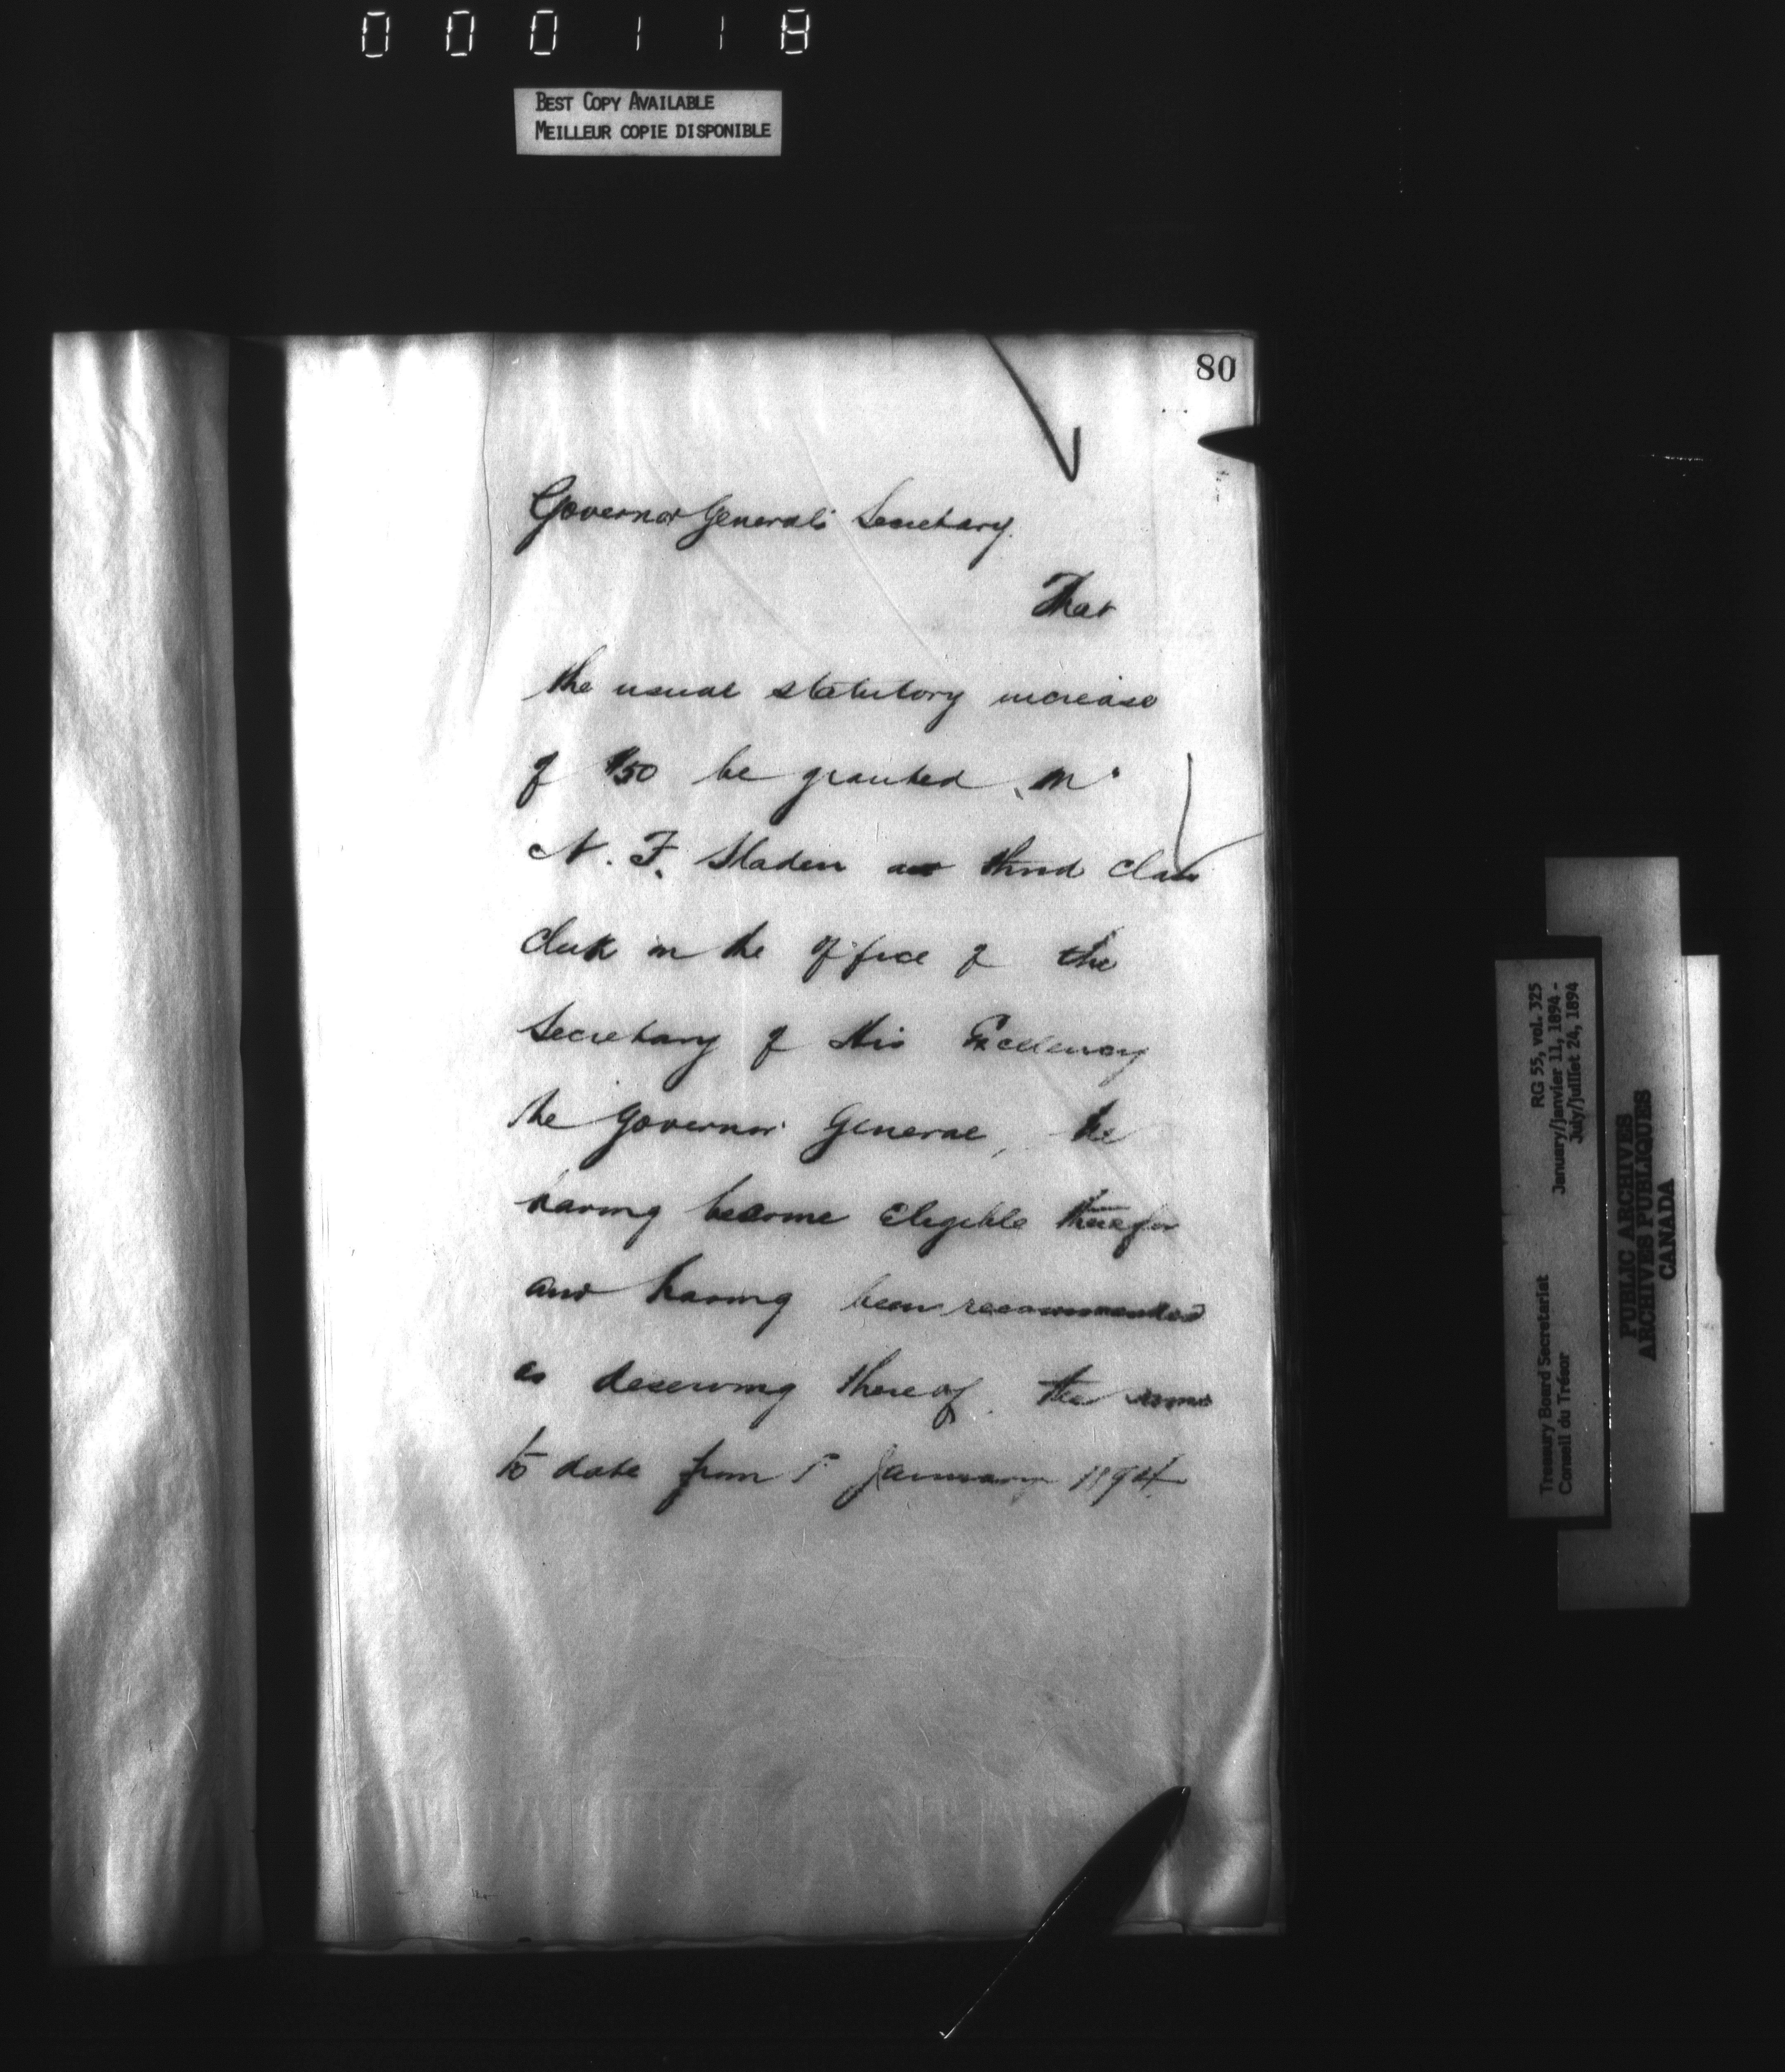 000118
BEST COPY AVAILABLE
MEILLEUR COPIE DISPONIBLE
80
Governor General's Secretary.
That
the usual statutory increase
of $50 be granted Mr
N. F. Sladen as third class
clerk in the office of the
Secretary of His Excellency
the Governor General, he
having become eligible therefor
and having been recommended
as deserving thereof. the same
to date from 1st January 1894
Treasury Board Secretariat
Conseil du Trésor
RG 55, vol. 325
January/janvier 11, 1894 -
July/juillet 24, 1894
PUBLIC ARCHIVES
ARCHIVES PUBLIQUES
CANADA